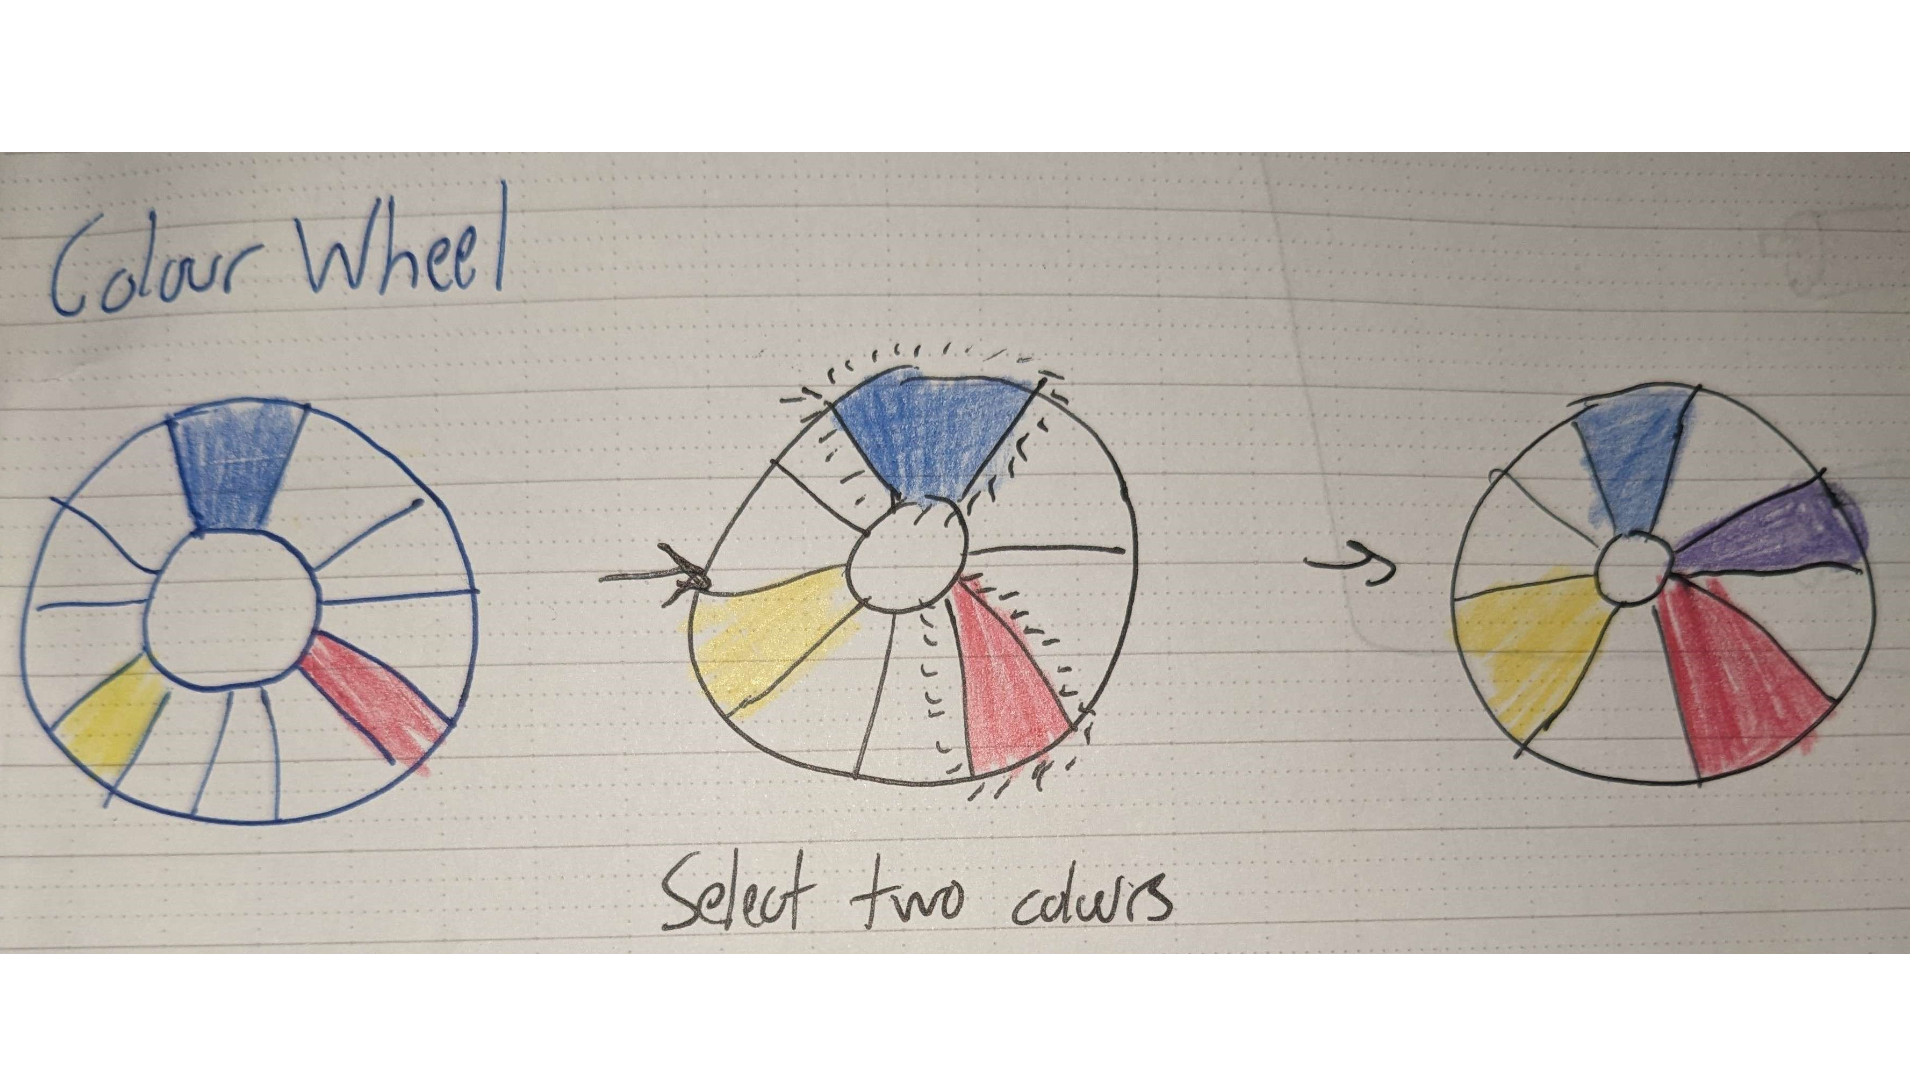 Colour Wheel
Select two colours